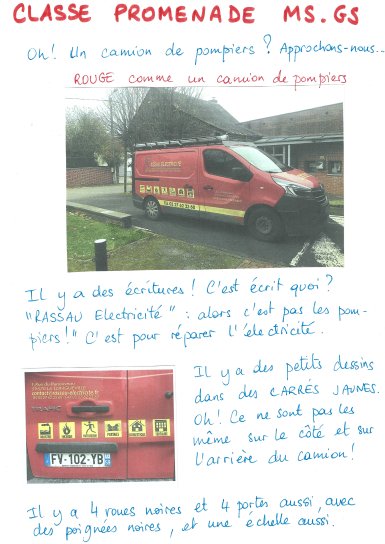 CLASSE PROMENADE MS.GS
Oh! Un camion de pompiers ? Approchons-nous...
ROUGE comme un camion de pompiers
Il y a des écritures ! C'est écrit quoi ?
"RASSAU Electricité" : alors c'est pas les pom-
piers !" C'est pour réparer l'électricité.
Il y a des petits dessins
dans des CARRÉS JAUNES.
Oh! Ce ne sont pas les
même sur le côté et sur
l'arrière du camion!
TRAFIC
FV-102-YB
Il y a 4 roues noires et 4 portes aussi, avec
des poignées noires, et une échelle aussi.